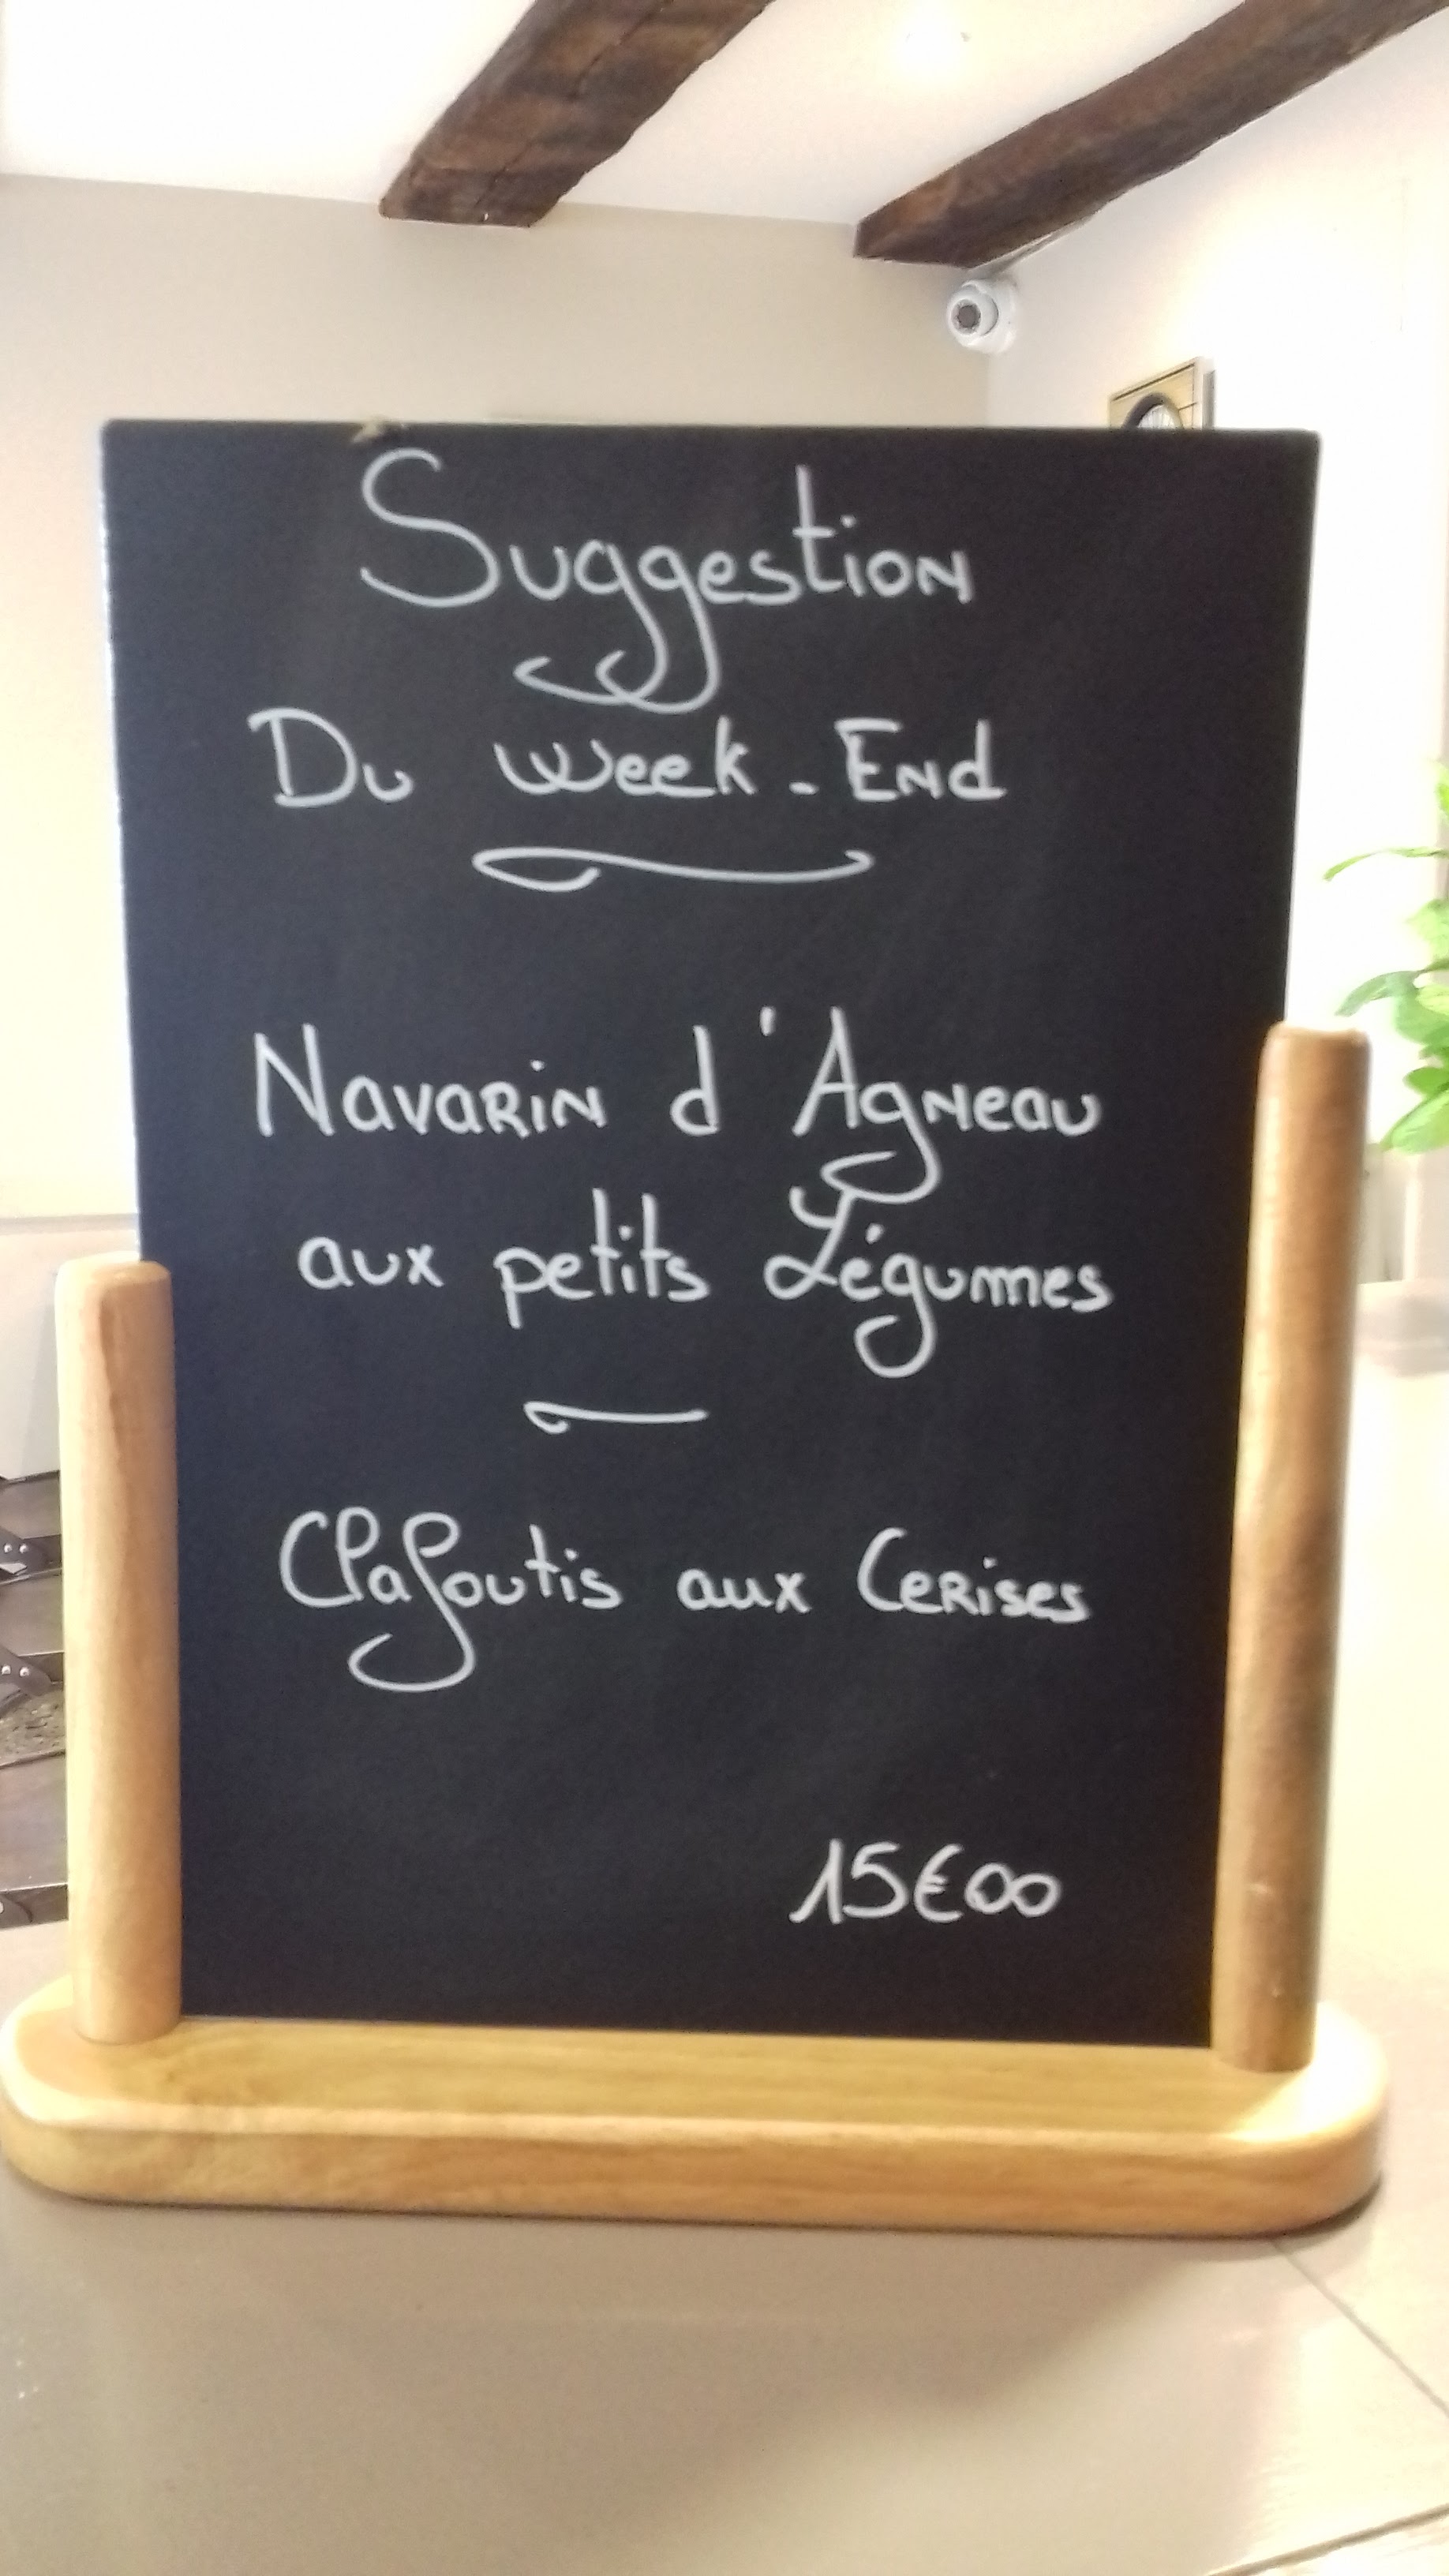 Suggestion
Du Week-End
Navarin d'Agneau
aux petits Légumes
Clafoutis aux Cerises
15€00